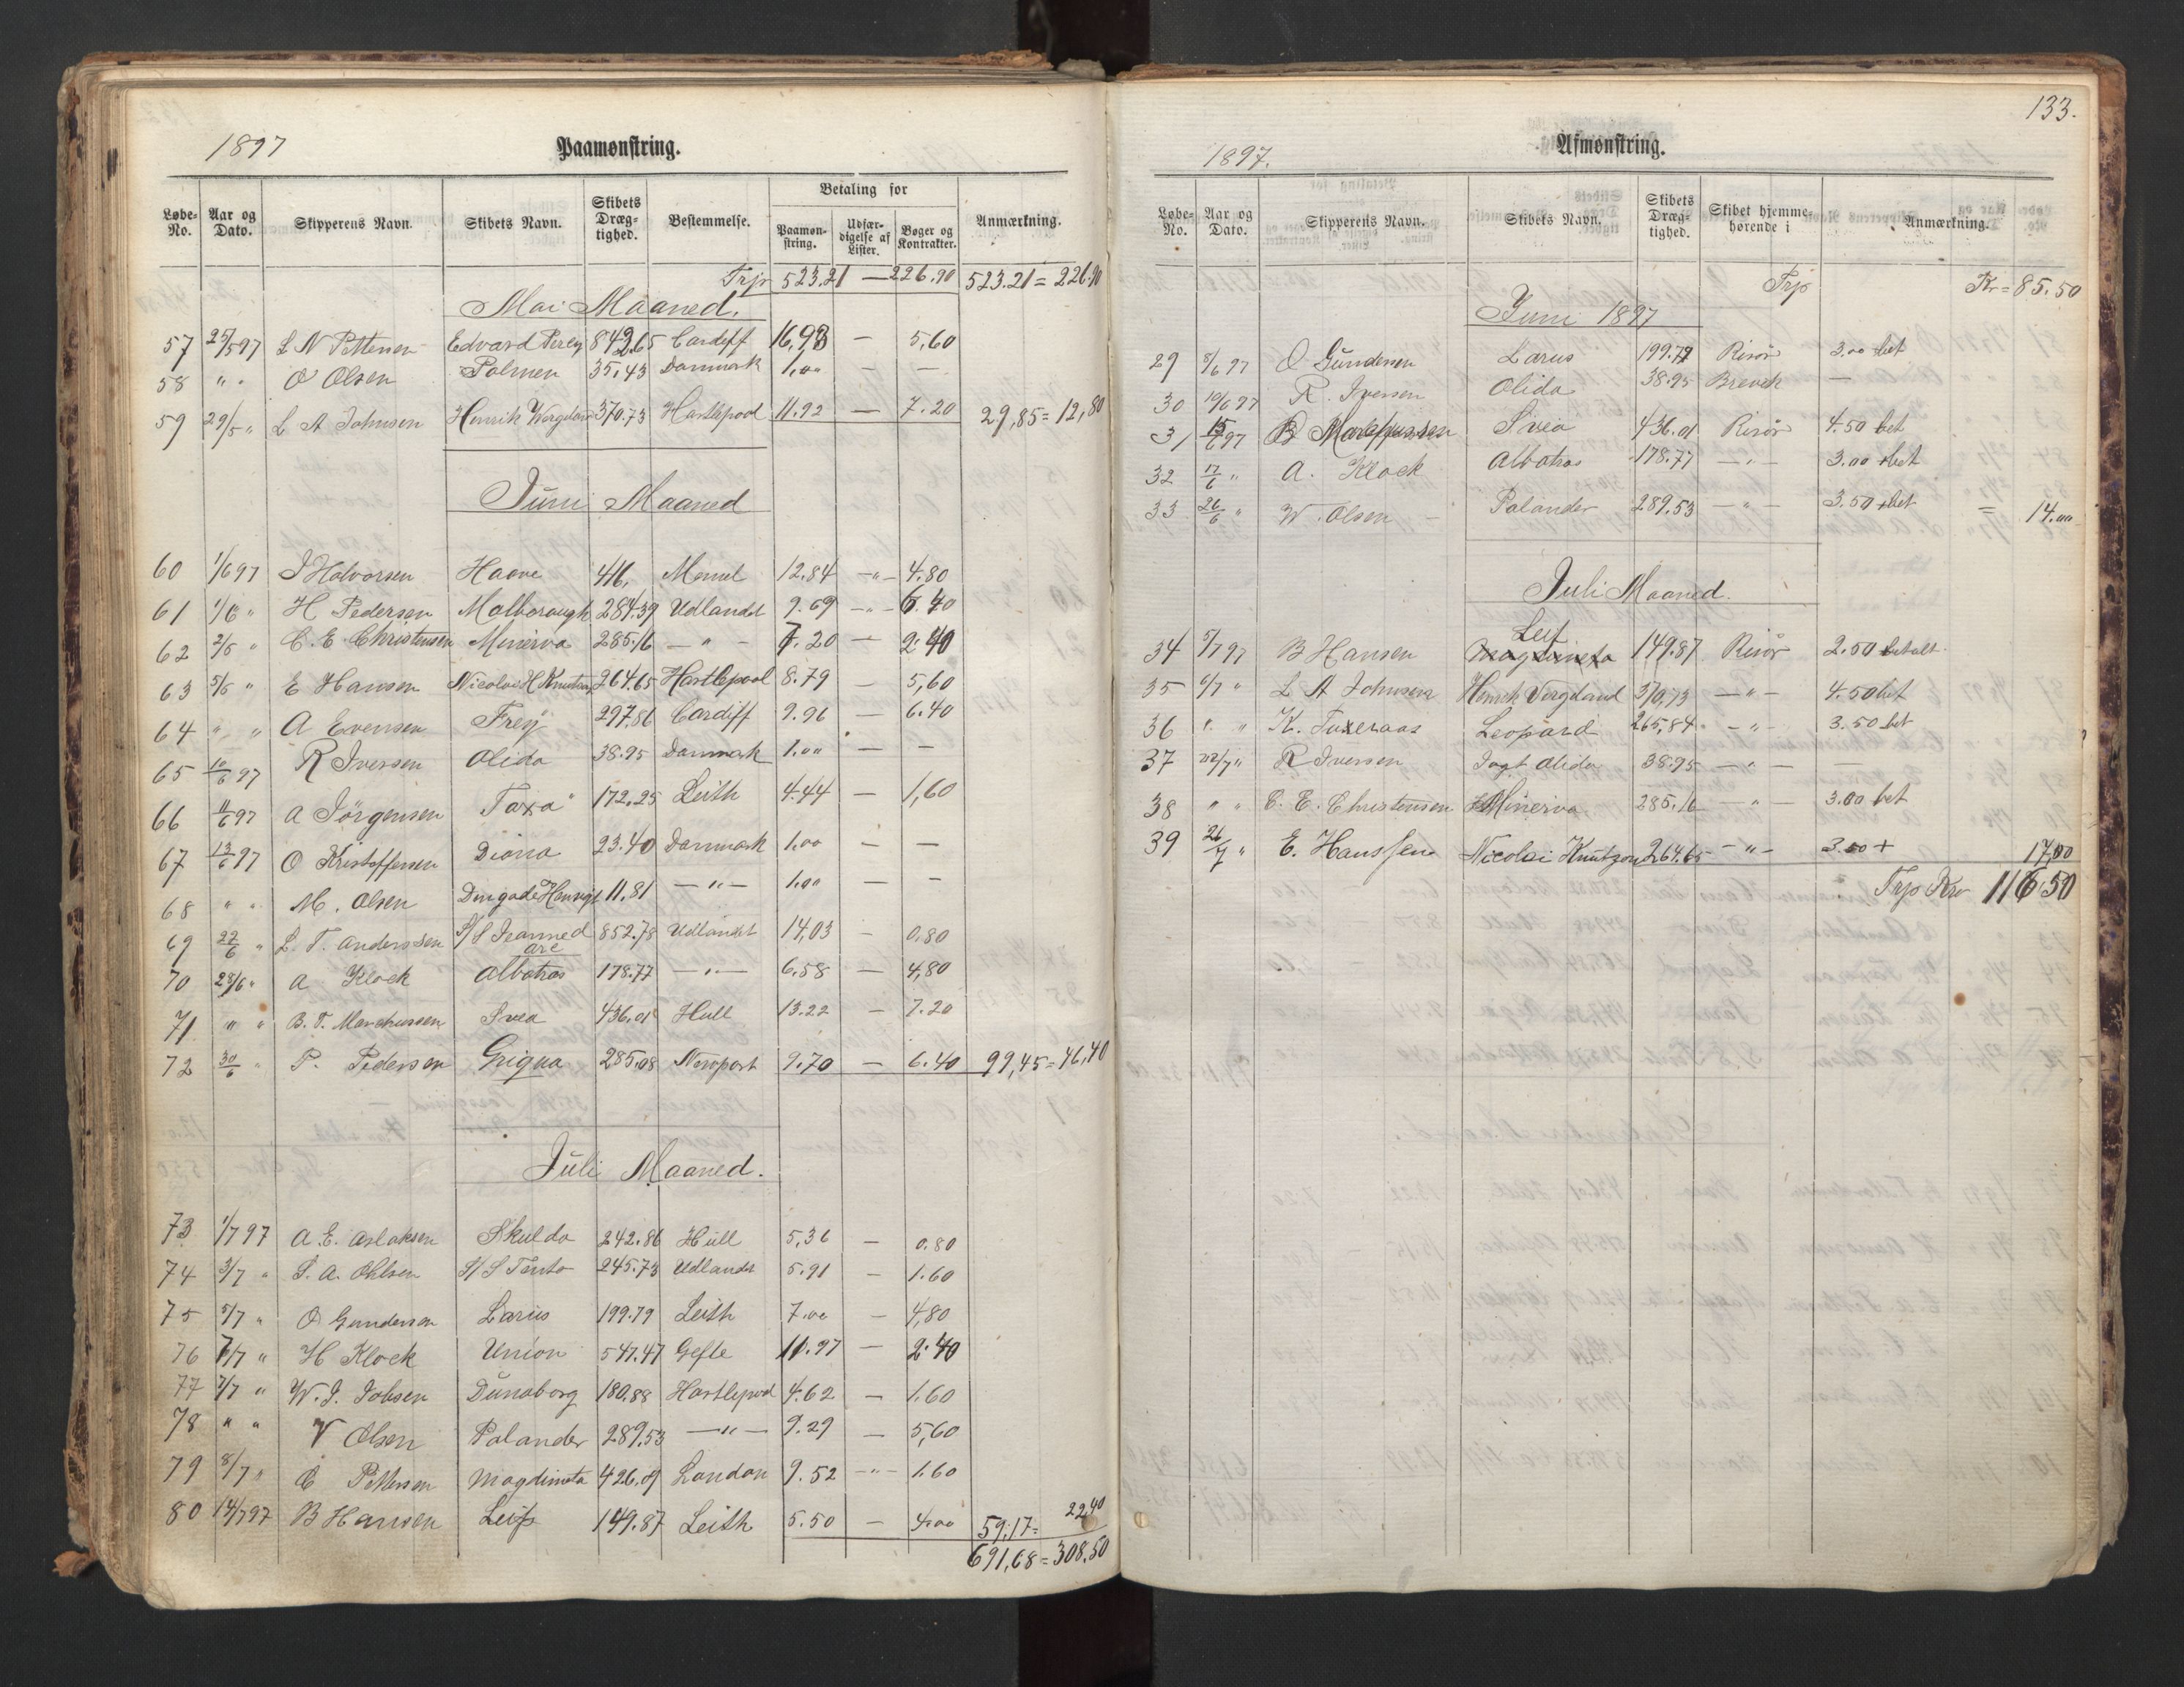 1897 Paamønstring.
Løbe-No. Aar og Dato. Skipperens Navn. Skibets Navn. Skibets Dræg-tighed. Bestemmelse. Betaling for Paamøn-string. Udfær-digelse af Lister. Bøger og Kontrakter. Anmærkning.
Trp 523.21 — 226.90 523.21 = 226.90
Mai Maaned.
57 25/5 97 L N Pettersen Edvard Percy 842.65 Cardiff 16,98 — 5,60
58 " " O Olsen Palmen 35,43 Danmark 1,00 — —
59 29/5 " L A Johnsen Henrik Wergeland 370.73 Hartlepool 11.92 — 7.20 29,85 = 12,80
Juni Maaned
60 1/6 97 J Halvorsen Haave 416, Memel 12.84 —"— 4.80
61 1/6 " H Pedersen Malborough 284.39 Udlandet 9.69 —"— 6.40
62 2/6 " C. E. Christensen Minerva 285.16 — " — 7.20 — 2.40
63 5/6 " E Hansen Nicolai H Knutzon 264.65 Hartlepool 8.79 — 5,60
64 " " A Evensen Frey 297,86 Cardiff 9.96 — 6.40
65 10/6 97 R Iversen Alida 38.95 Danmark 1.00 — —
66 11/6 97 A Jörgensen Taxa 172,25 Leith 4.44 — 1,60
67 13/6 97 O Kristoffersen Diana 23.40 Danmark 1.00 — —
68 " " M. Olsen 11.81 — " — 1.00 — —
69 22/6 " L. T. Anderssen S/S Jeanned arc 852.78 Udlandet 14,03 — 0.80
70 28/6 " A Klock Albatros 178.77 — " — 6.58 — 4,80
71 " " B. T. Marchussen Svea 436.01 Hull 13.22 — 7.20
72 30/6 " P. Pedersen Griqua 285,08 Newport 9.70 — 6.40 99,45 = 46,40
Juli Maaned.
73 1/7 97 A. E. Aslaksen Skulda 242.86 Hull 5,36 — 0.80
74 3/7 " P. A. Ohlsen S/S Tento 245.73 Udlandet 5.91 — 1.60
75 5/7 " O Gundersen Larus 199.79 Leith 7.00 — 4,80
76 7/7 " H Klock Union 547.47 Gefle 11.97 — 2.40
77 7/7 " W. J. Jobsen Dunaborg 180.88 Hartlepool 4.62 — 1.60
78 " " V Olsen Palander 289.53 — " — 9.29 — 5,60
79 8/7 " C Pettersen Magdineta 426.09 London 9.52 —"— 1.60
80 14/7 97 B Hansen Leif 149.87 Leith 5.50 — 4.00 59,17 = 22.40
691,68 = 308,50
133.
1897. Afmønstring.
Løbe-No. Aar og Dato. Skipperens Navn. Skibets Navn. Skibets Dræg-tighed. Skibet hjemme-hørende i Anmærkning.
Trp Kr = 85.50
Juni 1897
29 8/6 97 O Gundersen Larus 199.79 Risör 3.00 bet
30 10/6 97 R. Iversen Alida 38.95 Brevik —
31 15/6 97 B Marchussen Svea 436.01 Risör 4.50 bet
32 17/6 " A. Klock Albatros 178.77 — " — 3.00 bet
33 26/6 " W. Olsen Palander 289.53 — " — 3.50 bet = 14.00
Juli Maaned.
34 5/7 97 B Hansen Leif Magdineta 149.87 Risör 2.50 betalt
35 6/7 " L A Johnsen Henrik Vergeland 370,73 — " — 4.50 bet
36 " " K. Taxeraas Leopard 265,84 — " — 3.50 bet
37 22/7 " R Iversen Jagt Alida 38.95 — " — —
38 " " C. E. Christensen Minerva 285.16 — " — 3.00 bet
39 26/7 " E. Hanssen Nicolai Knutzon 264.65 — " — 3.50 + 17,00
Trp Kr 116,50